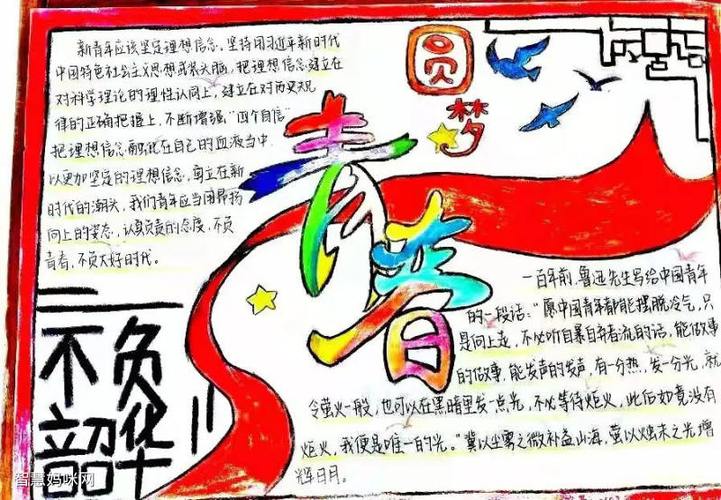 新青年应该坚定理想信念，坚持用习近平新时代
中国特色社会主义思想武装头脑，把理想信念建立在
对科学理论的理性认同上，建立在对历史规
律的正确把握上，不断增强“四个自信”
把理想信念融化在自己的血液当中
以更加坚定的理想信念，勇立在新
时代的潮头，我们青年应当用昂扬
向上的姿态，认真负责的态度，不负
青春，不负大好时代。
圆
梦
青春
一百年前，鲁迅先生写给中国青年
的一段话：“愿中国青年都能摆脱冷气，只
是向上走，不必听自暴自弃者流的话，能做事
的做事，能发声的发声，有一分热，发一分光，就
令萤火一般，也可以在黑暗里发一点光，不必等待炬火，此后如竟没有
炬火，我便是唯一的光。”冀以尘雾之微补益山海，萤以烛末之光增
辉日月。
不负
韶华
智慧妈咪网